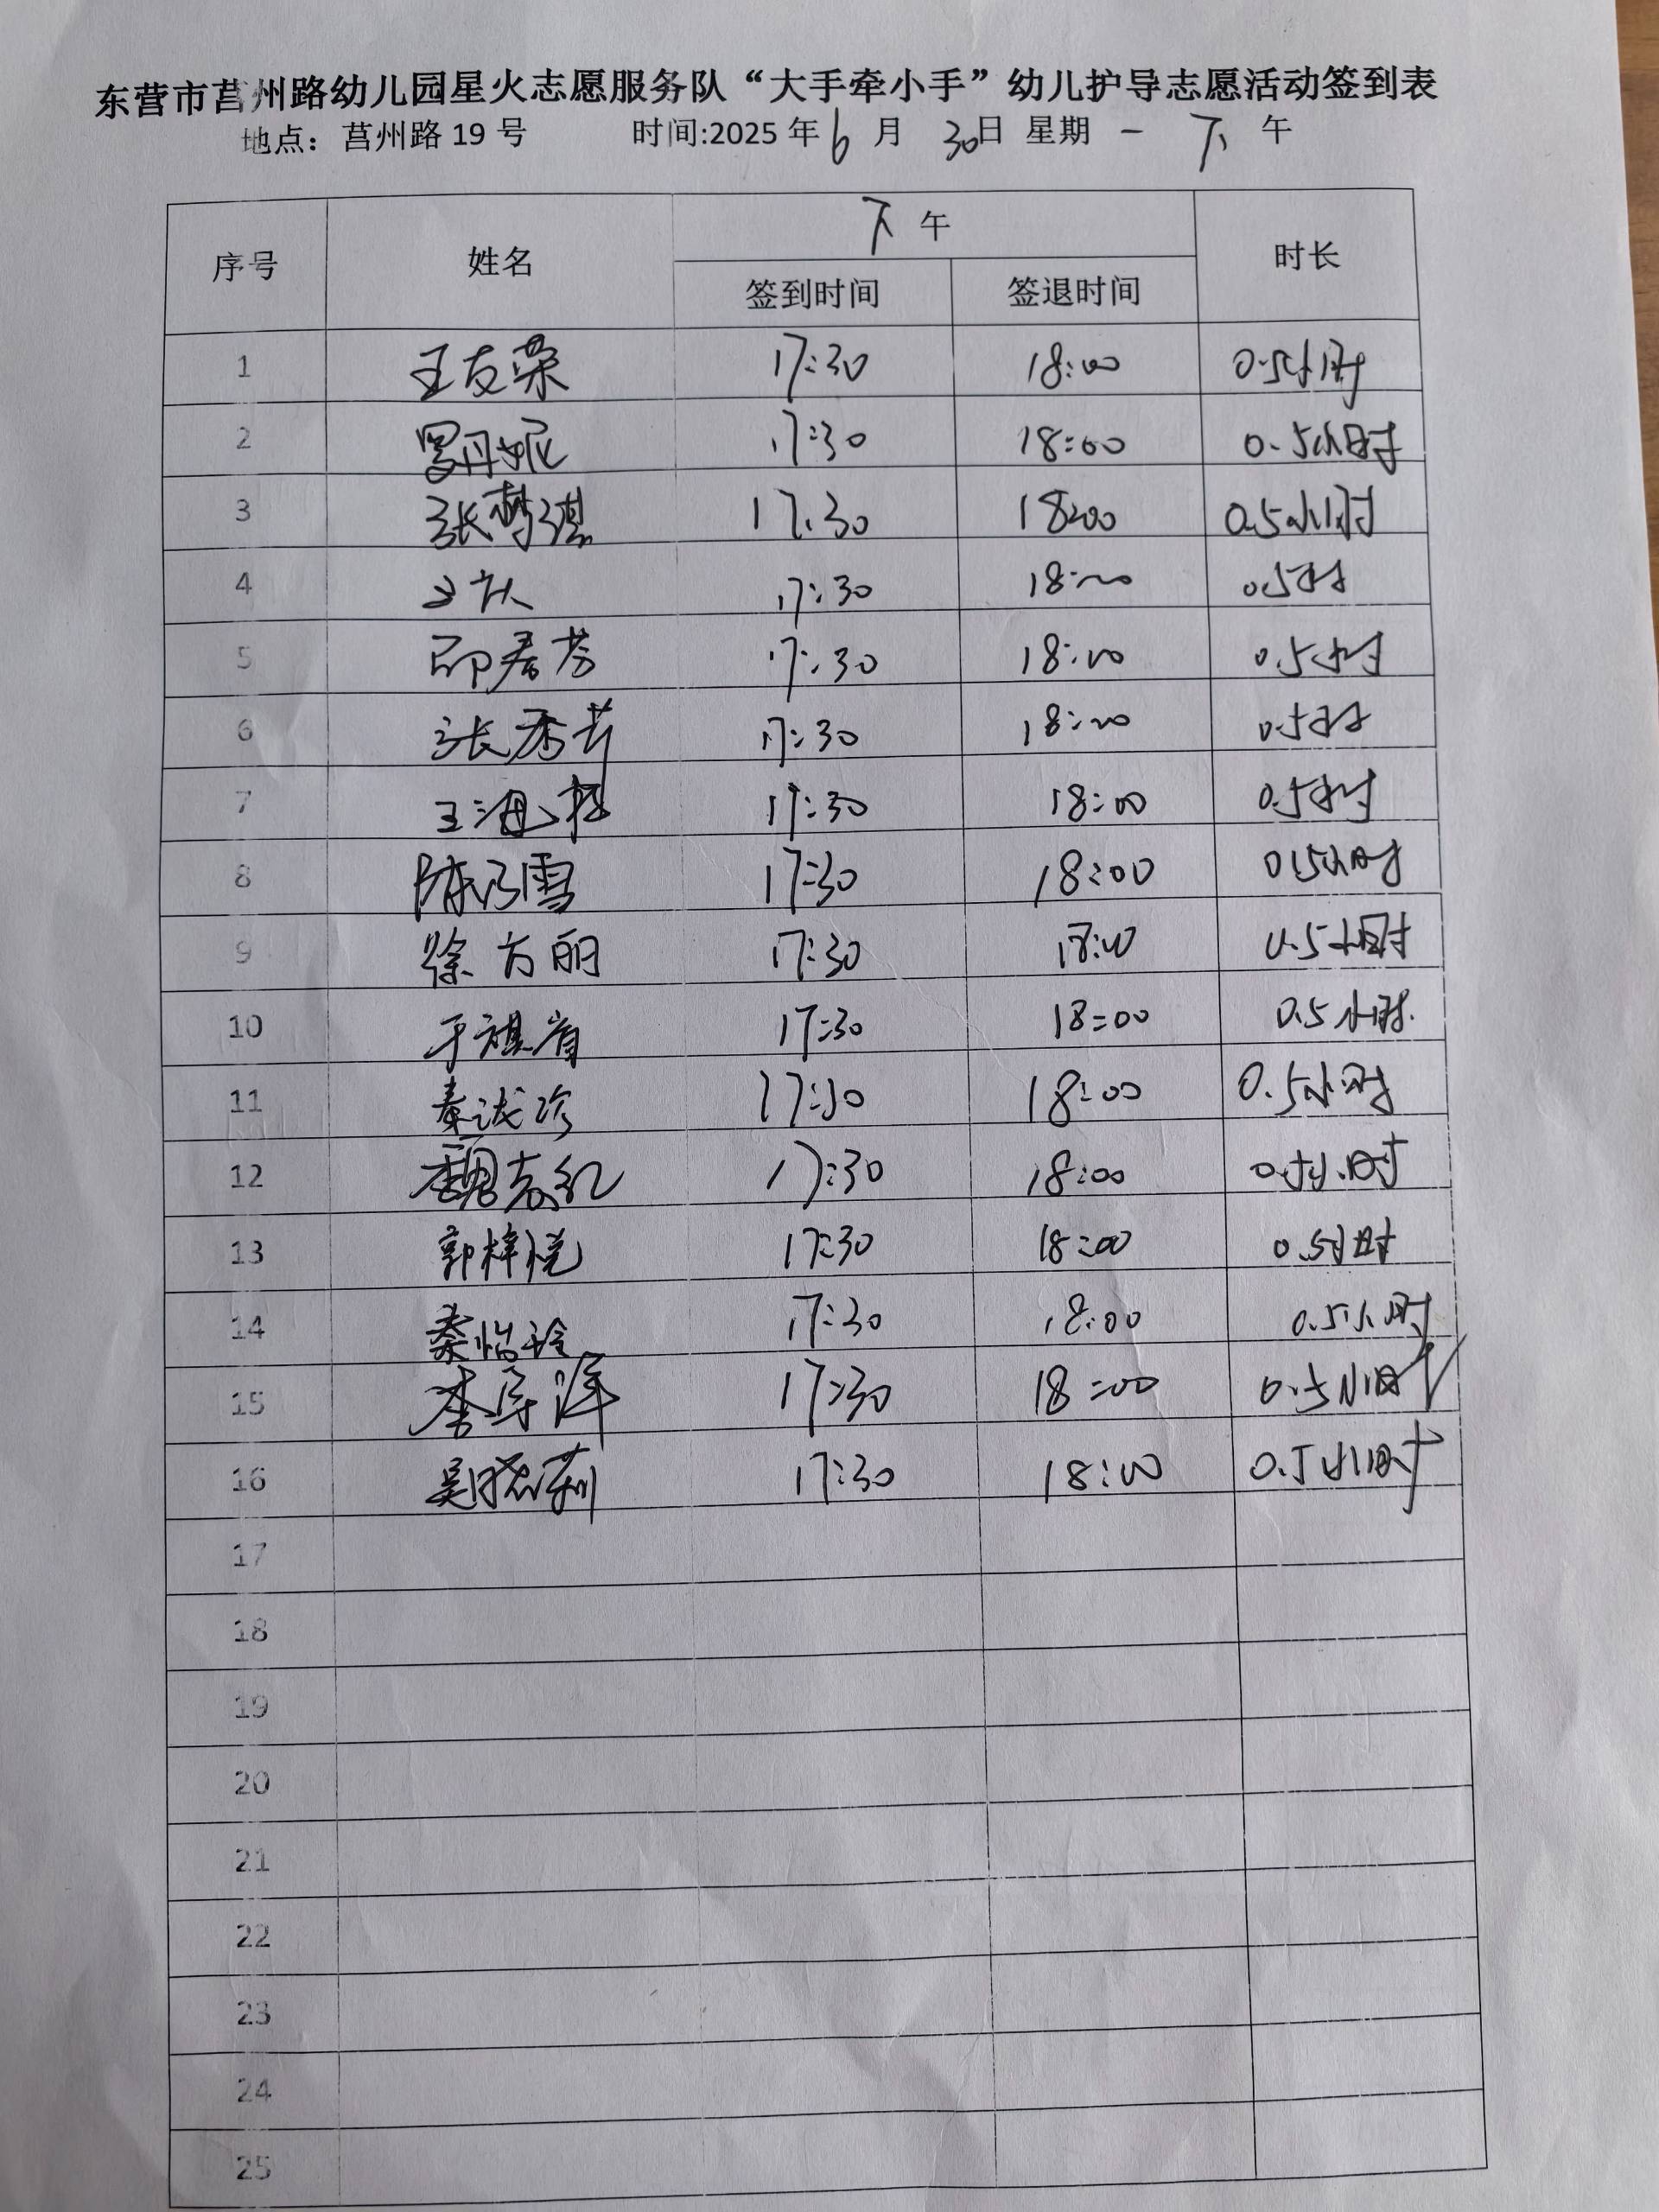 东营市莒州路幼儿园星火志愿服务队“大手牵小手”幼儿护导志愿活动签到表
地点：莒州路 19 号 时间:2025 年 6 月 30日 星期 一 下 午
序号 姓名 下 午 时长
签到时间 签退时间
1 王友荣 17:30 18:00 0.5小时
2 罗丹妮 17:30 18:00 0.5小时
3 张梦琪 17:30 18:00 0.5小时
4 17:30 18:00 0.5小时
5 邵春芳 17:30 18:00 0.5小时
6 张秀芹 17:30 18:00 0.5小时
7 王海 17:30 18:00 0.5小时
8 陈乃雪 17:30 18:00 0.5小时
9 徐方丽 17:30 18:00 0.5小时
10 于祺 17:30 18:00 0.5小时
11 秦 17:30 18:00 0.5小时
12 魏志红 17:30 18:00 0.5小时
13 郭梓悦 17:30 18:00 0.5小时
14 秦怡玲 17:30 18:00 0.5小时
15 李 洋 17:30 18:00 0.5小时
16 吴晓莉 17:30 18:00 0.5小时
17
18
19
20
21
22
23
24
25